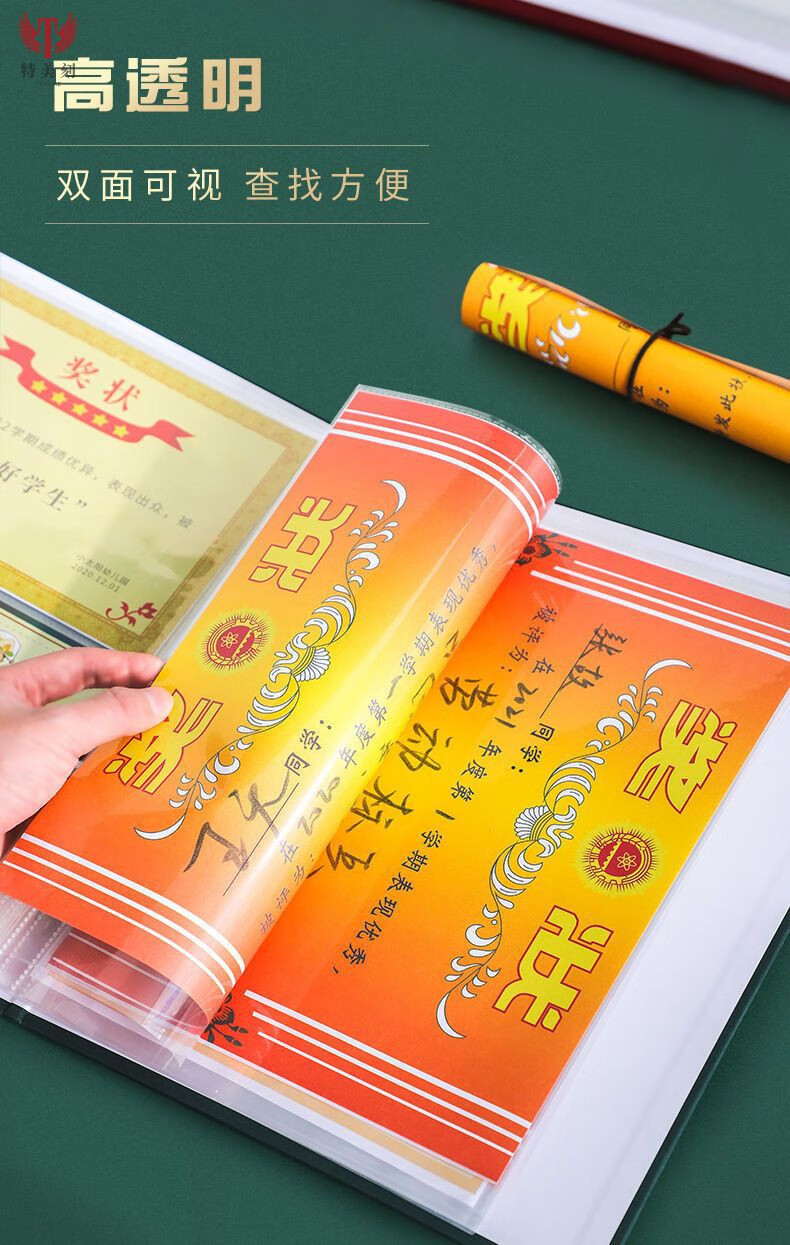 特美刻
高透明
双面可视 查找方便
奖状
2学期成绩优异，表现出众，被
好学生”
小太阳幼儿园
2020.12.01
奖
同
发此状
奖状
同学：
在2020年度第一学期表现优秀，
被评为：
奖状
同学：
在2021年度第1学期表现优秀，
被评为：
劳动标兵